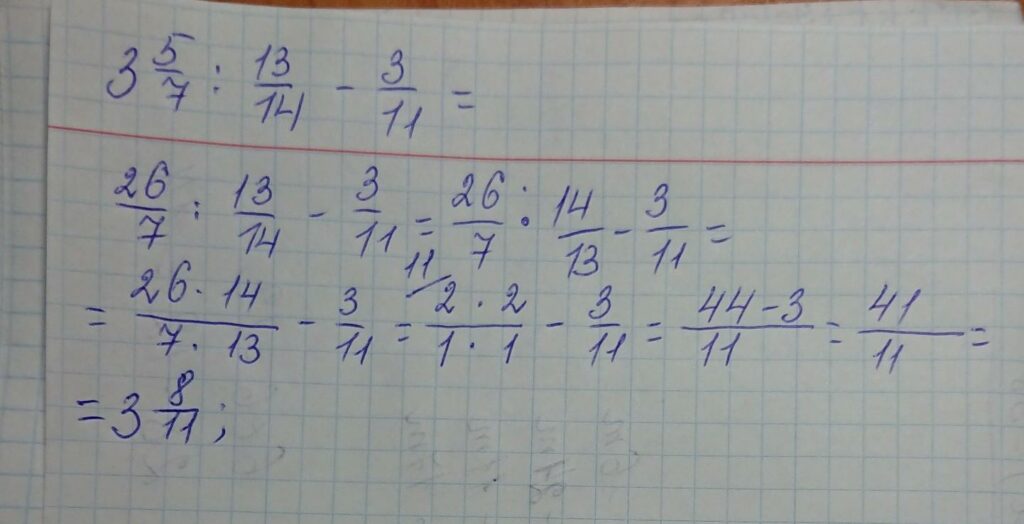 3 5/7 : 13/14 - 3/11 =
26/7 : 13/14 - 3/11 = 26/7 · 14/13 - 3/11 =
= 26 · 14 / 7 · 13 - 3/11 = 11/ 2 · 2 / 1 · 1 - 3/11 = 44 - 3 / 11 = 41/11 =
= 3 8/11 ;